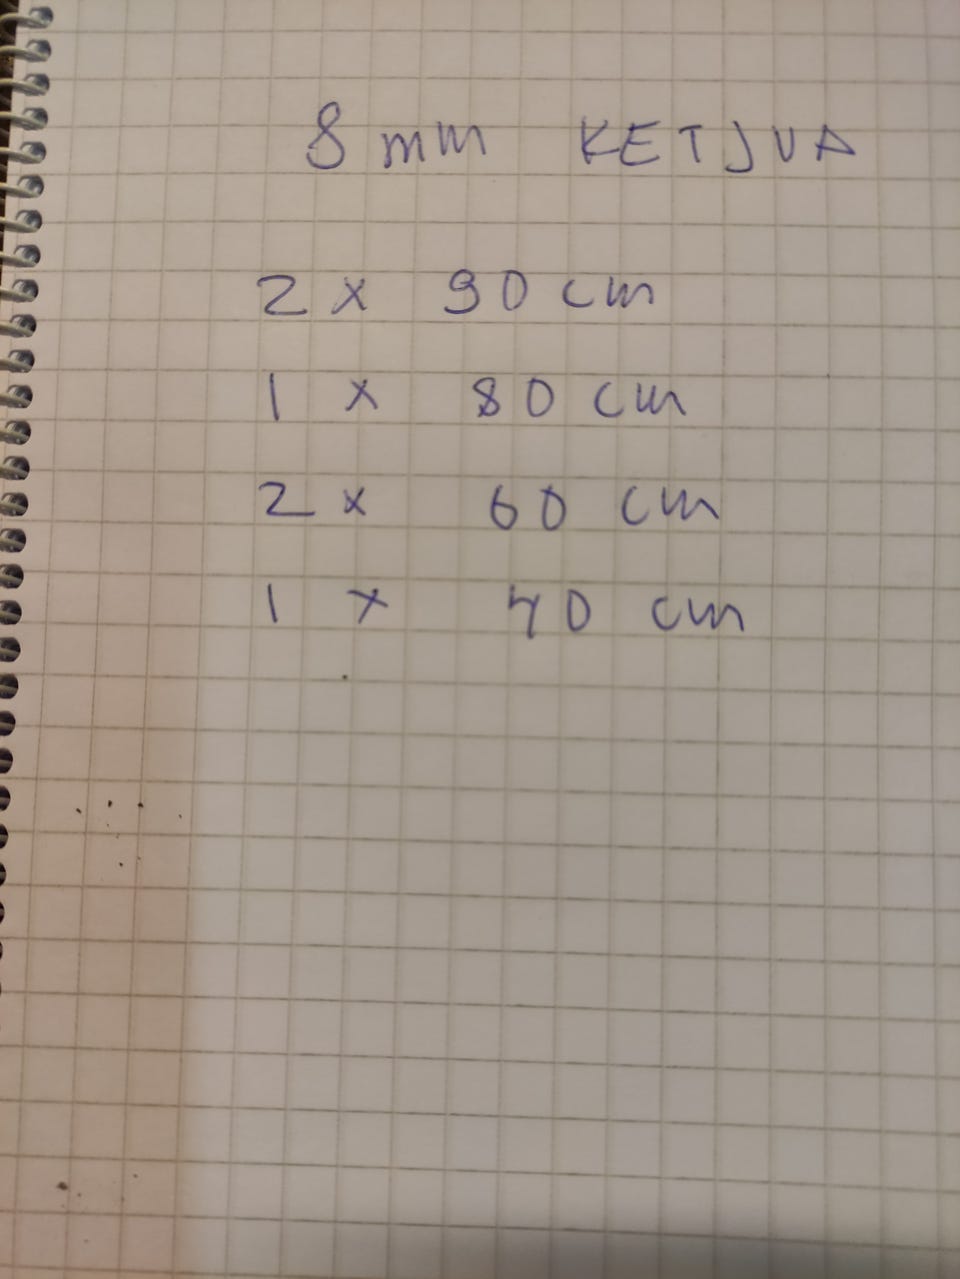 8 mm KETJUA
2 x 90 cm
1 x 80 cm
2 x 60 cm
1 x 40 cm